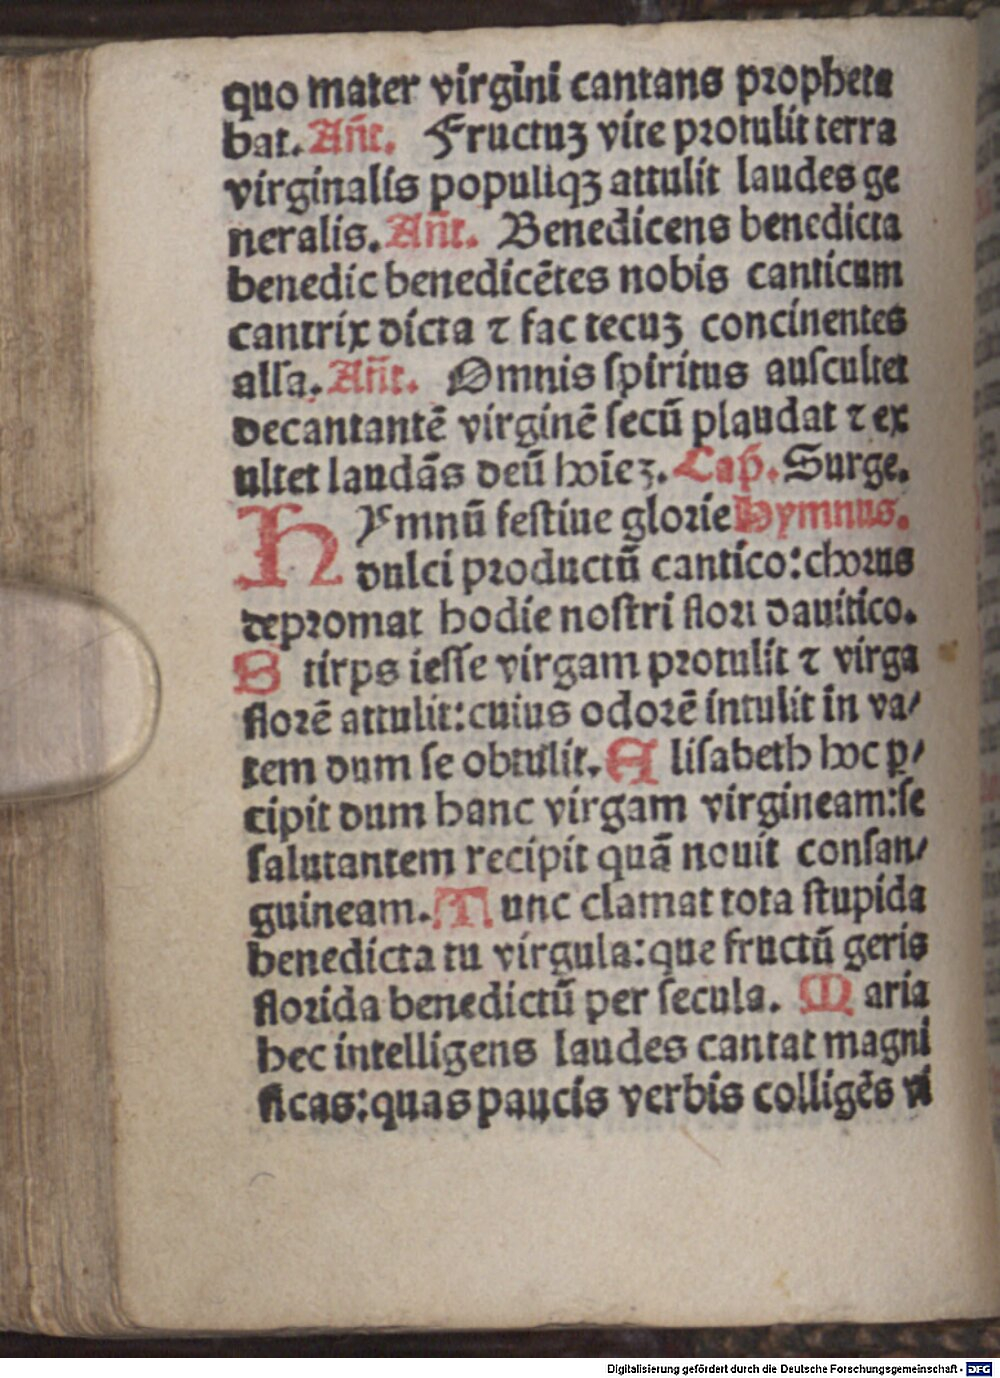 quo mater virgini cantans propheta
bat. Añt. Fructuʒ vite protulit terra
virginalis populiqʒ attulit laudes ge
neralis. Añt. Benedicens benedicta
benedic benedicẽtes nobis canticum
cantrix dicta ⁊ fac tecuʒ concinentes
alla. Añt. Omnis spiritus auscultet
decantantẽ virginẽ secũ plaudat ⁊ ex
ultet laudãs deũ hoieʒ. Cap̃. Surge.
HYmnũ festiue glorie Hymnus.
dulci productũ cantico: chorus
depromat hodie nostri flori dauitico.
Stirps iesse virgam protulit ⁊ virga
florẽ attulit: cuius odorẽ intulit in va/
tem dum se obtulit. Elisabeth hoc p̱/
cipit dum hanc virgam virgineam: se
salutantem recipit quã nouit consan/
guineam. Tunc clamat tota stupida
benedicta tu virgula: que fructũ geris
florida benedictũ per secula. Maria
hec intelligens laudes cantat magni
ficas: quas paucis verbis colligẽs vi
Digitalisierung gefördert durch die Deutsche Forschungsgemeinschaft - DFG